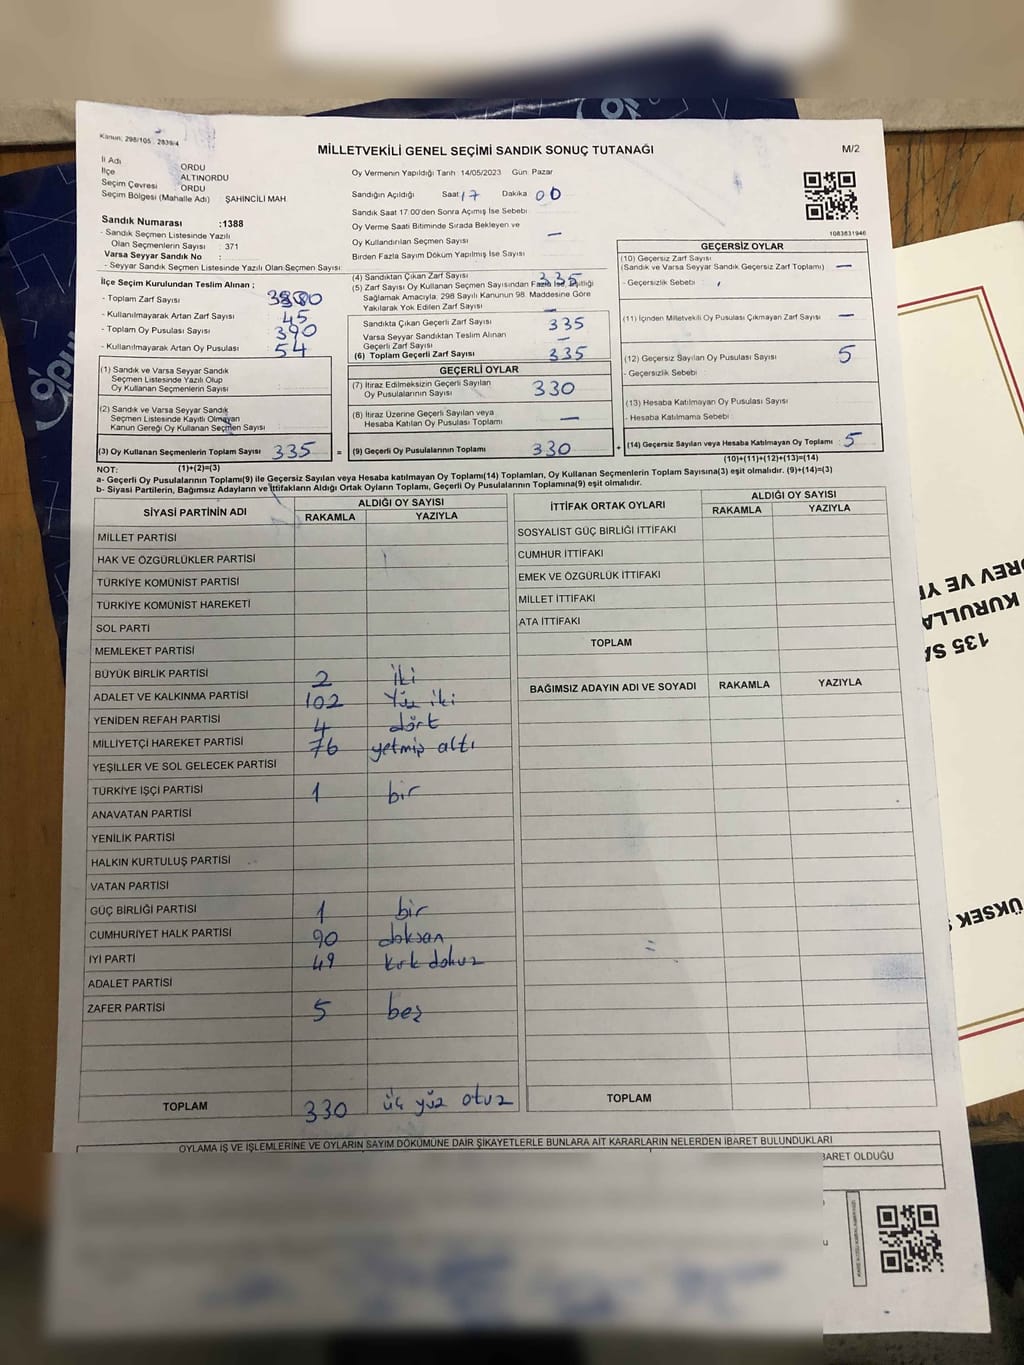 Kanun: 298/105 2839/4
MİLLETVEKİLİ GENEL SEÇİMİ SANDIK SONUÇ TUTANAĞI
M/2
İl Adı ORDU
İlçe ALTINORDU
Seçim Çevresi ORDU
Seçim Bölgesi (Mahalle Adı) : ŞAHİNCİLİ MAH.
Sandık Numarası :1388
- Sandık Seçmen Listesinde Yazılı
Olan Seçmenlerin Sayısı : 371
Varsa Seyyar Sandık No :
- Seyyar Sandık Seçmen Listesinde Yazılı Olan Seçmen Sayısı:
İlçe Seçim Kurulundan Teslim Alınan :
- Toplam Zarf Sayısı
- Kullanılmayarak Artan Zarf Sayısı : 45
- Toplam Oy Pusulası Sayısı : 390
- Kullanılmayarak Artan Oy Pusulası : 54
(1) Sandık ve Varsa Seyyar Sandık
Seçmen Listesinde Yazılı Olup
Oy Kullanan Seçmenlerin Sayısı :
(2) Sandık ve Varsa Seyyar Sandık
Seçmen Listesinde Kayıtlı Olmayan
Kanun Gereği Oy Kullanan Seçmen Sayısı :
(3) Oy Kullanan Seçmenlerin Toplam Sayısı 335 =
Oy Vermenin Yapıldığı Tarih 14/05/2023 Gün: Pazar
Sandığın Açıldığı Saat 17 Dakika 00
Sandık Saat 17:00'den Sonra Açılmış İse Sebebi
Oy Verme Saati Bitiminde Sırada Bekleyen ve
Oy Kullandırılan Seçmen Sayısı —
Birden Fazla Sayım Döküm Yapılmış İse Sayısı
(4) Sandıktan Çıkan Zarf Sayısı 335
(5) Zarf Sayısı Oy Kullanan Seçmen Sayısından Fazla İse, Eşitliği
Sağlamak Amacıyla, 298 Sayılı Kanunun 98. Maddesine Göre
Yakılarak Yok Edilen Zarf Sayısı —
Sandıkta Çıkan Geçerli Zarf Sayısı 335
Varsa Seyyar Sandıktan Teslim Alınan
Geçerli Zarf Sayısı —
(6) Toplam Geçerli Zarf Sayısı 335
GEÇERLİ OYLAR
(7) İtiraz Edilmeksizin Geçerli Sayılan
Oy Pusulalarının Sayısı 330
(8) İtiraz Üzerine Geçerli Sayılan veya
Hesaba Katılan Oy Pusulası Toplamı —
(9) Geçerli Oy Pusulalarının Toplamı 330 +
1083631946
GEÇERSİZ OYLAR
(10) Geçersiz Zarf Sayısı
(Sandık ve Varsa Seyyar Sandık Geçersiz Zarf Toplamı) —
- Geçersizlik Sebebi :
(11) İçinden Milletvekili Oy Pusulası Çıkmayan Zarf Sayısı —
(12) Geçersiz Sayılan Oy Pusulası Sayısı 5
- Geçersizlik Sebebi :
(13) Hesaba Katılmayan Oy Pusulası Sayısı
- Hesaba Katılmama Sebebi :
(14) Geçersiz Sayılan veya Hesaba Katılmayan Oy Toplamı 5
NOT: (1)+(2)=(3)
(10)+(11)+(12)+(13)=(14)
a- Geçerli Oy Pusulalarının Toplamı(9) ile Geçersiz Sayılan veya Hesaba Katılmayan Oy Toplamı(14) Toplamları, Oy Kullanan Seçmenlerin Toplam Sayısına(3) eşit olmalıdır. (9)+(14)=(3)
b- Siyasi Partilerin, Bağımsız Adayların ve İttifakların Aldığı Ortak Oyların Toplamı, Geçerli Oy Pusulalarının Toplamına(9) eşit olmalıdır.
SİYASİ PARTİNİN ADI ALDIĞI OY SAYISI
RAKAMLA YAZIYLA
MİLLET PARTİSİ
HAK VE ÖZGÜRLÜKLER PARTİSİ
TÜRKİYE KOMÜNİST PARTİSİ
TÜRKİYE KOMÜNİST HAREKETİ
SOL PARTİ
MEMLEKET PARTİSİ
BÜYÜK BİRLİK PARTİSİ 2 iki
ADALET VE KALKINMA PARTİSİ 102 Yüz iki
YENİDEN REFAH PARTİSİ 4 dört
MİLLİYETÇİ HAREKET PARTİSİ 76 yetmiş altı
YEŞİLLER VE SOL GELECEK PARTİSİ
TÜRKİYE İŞÇİ PARTİSİ 1 bir
ANAVATAN PARTİSİ
YENİLİK PARTİSİ
HALKIN KURTULUŞ PARTİSİ
VATAN PARTİSİ
GÜÇ BİRLİĞİ PARTİSİ 1 bir
CUMHURİYET HALK PARTİSİ 90 doksan
İYİ PARTİ 49 kırk dokuz
ADALET PARTİSİ
ZAFER PARTİSİ 5 beş
TOPLAM 330 üç yüz otuz
İTTİFAK ORTAK OYLARI ALDIĞI OY SAYISI
RAKAMLA YAZIYLA
SOSYALİST GÜÇ BİRLİĞİ İTTİFAKI
CUMHUR İTTİFAKI
EMEK VE ÖZGÜRLÜK İTTİFAKI
MİLLET İTTİFAKI
ATA İTTİFAKI
TOPLAM
BAĞIMSIZ ADAYIN ADI VE SOYADI RAKAMLA YAZIYLA
=
TOPLAM
OYLAMA İŞ VE İŞLEMLERİNE VE OYLARIN SAYIM DÖKÜMÜNE DAİR ŞİKAYETLERLE BUNLARA AİT KARARLARIN NELERDEN İBARET BULUNDUKLARI
BARET OLDUĞU
135 SA
KURULLA
REV VE YE
ÜKSEK S